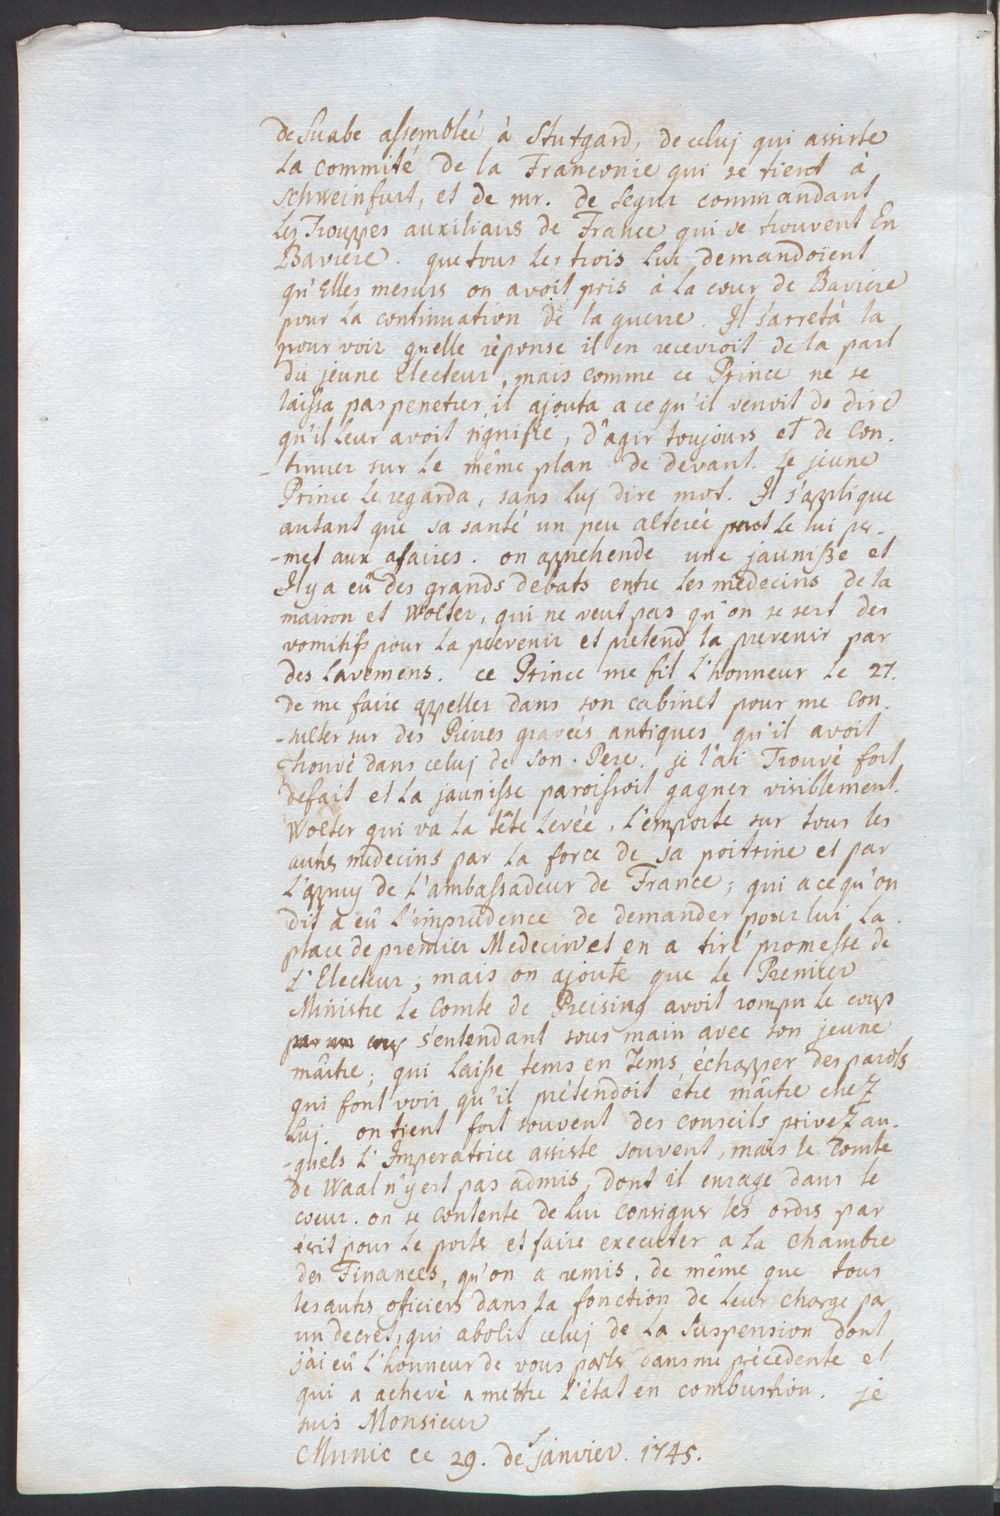 de Suabe assemblée à Stutgard, de celuj qui assiste
La commité de la Franconie qui se tient à
Schweinfurt, et de mr. de Segur commandant
Les Trouppes auxiliaus de France qui se trouvent En
Baviere. que tous les trois Lui demandoïent
qu'Elles mesurs on avoit pris à La cour de Baviere
pour La continuation de la guerre. Il s'arreta la
pour voir quelle réponse il en recevroit de la part
du jeune Electeur, mais comme ce Prince ne se
laissa pas penetrer, il ajouta a ce qu'il venoit de dire
qu'il Leur avoit signifié, d'agir toujours et de Con.
-tinuer sur Le même plan de devant. Le jeune
Prince Le regarda, sans Luj dire mot. Il s'applique
autant que sa santé un peu alterée le lui per-
-met aux afaires. on apprehende une jaunisse et
Il y a eû des grands debats entre Les medecins de la
maison et Wolter, qui ne veut pas qu'on se sert des
vomitifs pour La prevenir et pretend la prevenir par
des Lavemens. ce Prince me fit L'honneur Le 27.
de me faire appeller dans son cabinet pour me Con.
-sulter sur des Pieres gravées antiques qu'il avoit
trouvé dans celuj de Son Pere. je l'ai Trouvé fort
defait et La jaunisse paroissoit gagner visiblement.
Wolter qui va La tête Levée, L'emporte sur tous les
auts medecins par La force de sa poitrine et par
L'appuy de L'ambassadeur de France; qui a ce qu'on
dit a eû L'imprudence de demander pour lui La
place de premier Medecin et en a tiré promesse de
L'Electeur; mais on ajoute que Le Premier
Ministre Le Comte de Preising avoit rompu Le coup
s'entendant sous main avec son jeune
mâitre; qui Laisse tems en Tems échapper des parols
qui font voir qu'il prétendoit être mâitre chez
Luj. on tient fort souvent des conseils privez au-
-quels L'Imperatrice assiste souvent, mais le Comte
de Waal n'y est pas admis, dont il enrage dans le
coeur. on se contente de Lui consigner les ordrs par
écrit pour Le porter et faire executer a La chambre
des Finances, qu'on a remis, de même que tous
les auts officiers dans La fonction de Leur charge par
un decret, qui abolit celuj de La Suspension dont
j'ai eû L'honneur de vous parler dans me précedente et
qui a achevé a mettre L'état en combustion. je
suis Monsieur
Munic ce 29. de Janvier. 1745.